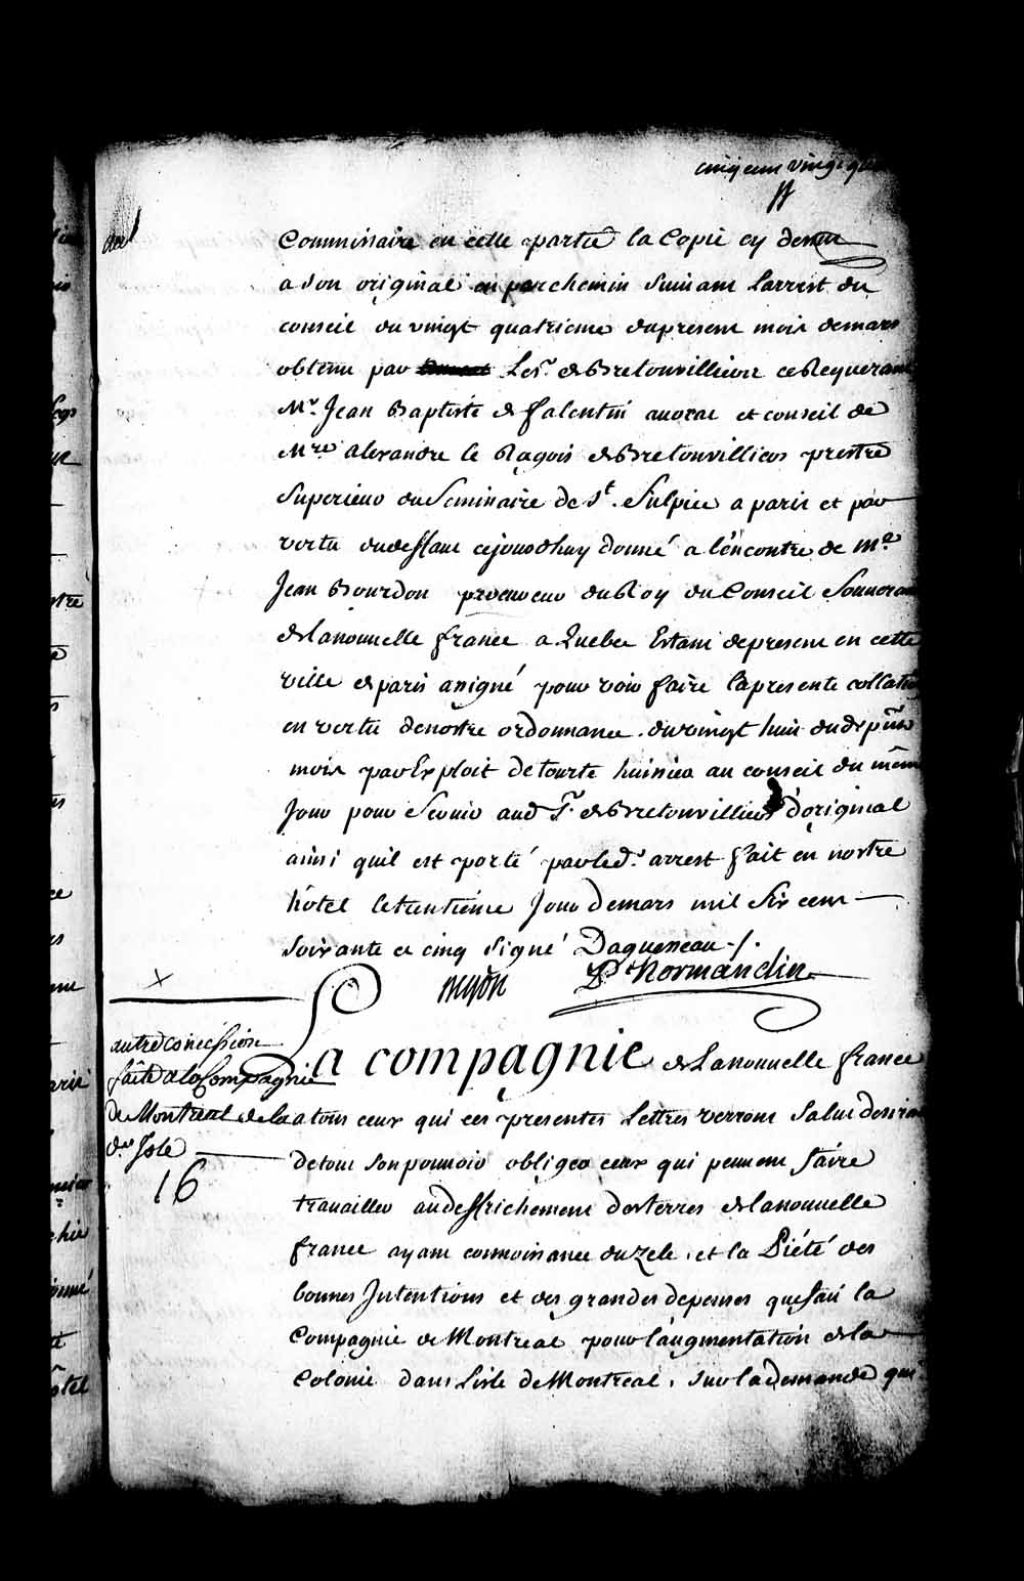 cinq cent vingt
Commissaire en cette partie la Copie cy dessus
a son original en parchemin suivant l'arrest du
conseil du vingt quatrieme dupresent mois demars
obtenu par Les.r deBretonvilliers ceRequerant
Mr. Jean Baptiste de Falentin avocat et conseil de
Mre alexandre le Ragois deBretonvilliers prestre
Superieur duSeminaire de St. Sulpice a paris et par
vertu dudeffaut cejourdhuy donné a l'encontre de Me
Jean Bourdon procureur duRoy du Conseil Souverain
delanouvelle france a Quebec Estant depresent en cette
ville deparis assigné pour voir faire lapresente collation
en vertu denostre ordonnance du vingt huit dudt pnt
mois parExploit detourte huissier au conseil du même
Jour pour Servir aud Sr. deBretonvilliers d'original
ainsi quil est porté parled. arrest fait en nostre
hôtel letrentieme Jour demars mil Six cent
soixante et cinq signé Daguesseau ./.
P Normandin
autre concession
faite a la Compagnie
de Montreal dela
de. Isle
16
La compagnie delanouvelle france
atous ceux qui ces presentes Lettres verront Salut desirant
detout Sonpouvoir obliger ceux qui peuvent faire
travailler audeffrichement desterres delanouvelle
france ayant connoissance duzele, et la Piété des
bonnes Intentions et des grandes depenses quefait la
Compagnie deMontreal pour l'augmentation dela
Colonie dans Lisle deMontréal, sur lademande qui